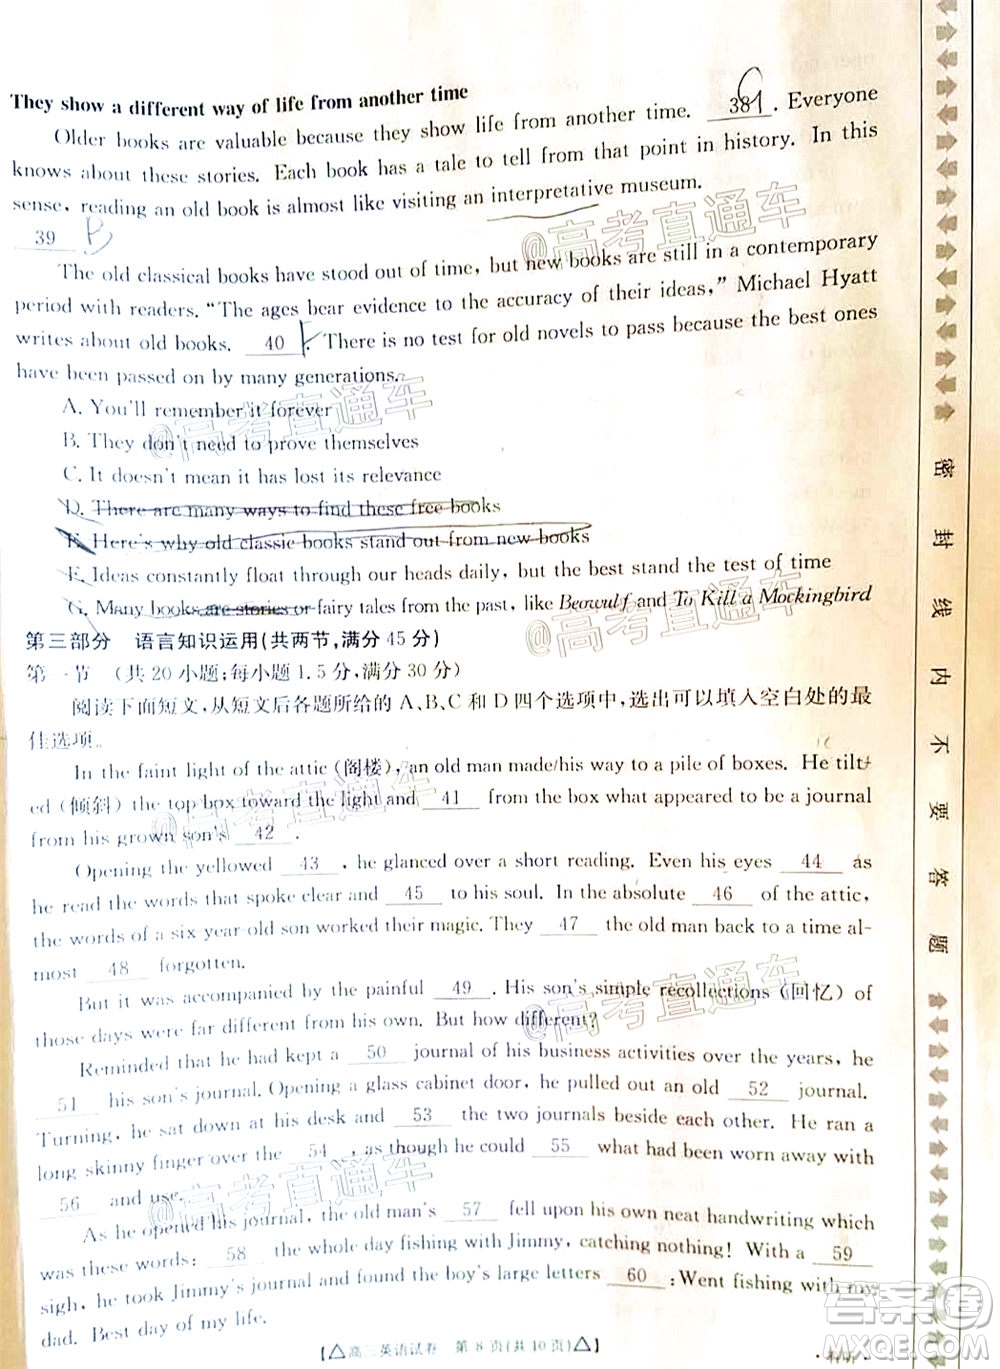 They show a different way of life from another time
Older books are valuable because they show life from another time. 38 . Everyone
knows about these stories. Each book has a tale to tell from that point in history. In this
sense, reading an old book is almost like visiting an interpretative museum.
39 B
The old classical books have stood out of time, but new books are still in a contemporary
period with readers. “The ages bear evidence to the accuracy of their ideas,” Michael Hyatt
writes about old books. 40 . There is no test for old novels to pass because the best ones
have been passed by many generations.
A. You'll remember it forever
B. They don't need to prove themselves
C. It doesn't mean it has lost its relevance
D. There are many ways to find these free books
E. Here's why old classic books stand out from new books
F. Ideas constantly float through our heads daily, but the best stand the test of time
G. Many books are stories or fairy tales from the past, like Beowulf and To Kill a Mockingbird
第三部分 语言知识运用(共两节,满分 45 分)
第一节 (共 20 小题;每小题 1.5 分,满分 30 分)
阅读下面短文,从短文后各题所给的 A、B、C 和 D 四个选项中,选出可以填入空白处的最
佳选项。
In the faint light of the attic (阁楼), an old man made/his way to a pile of boxes. He tilt-
ed (倾斜) the top box toward the light and 41 from the box what appeared to be a journal
from his grown son's 42 .
Opening the yellowed 43 , he glanced over a short reading. Even his eyes 44 as
he read the words that spoke clear and 45 to his soul. In the absolute 46 of the attic,
the words of a six-year-old son worked their magic. They 47 the old man back to a time al-
most 48 forgotten.
But it was accompanied by the painful 49 . His son's simple recollections (回忆) of
those days were far different from his own. But how different?
Reminded that he had kept a 50 journal of his business activities over the years, he
51 his son's journal. Opening a glass cabinet door, he pulled out an old 52 journal.
Turning, he sat down at his desk and 53 the two journals beside each other. He ran a
long skinny finger over the 54 , as though he could 55 what had been worn away with
56 and use.
As he opened his journal, the old man's 57 fell upon his own neat handwriting which
were these words: 58 the whole day fishing with Jimmy, catching nothing! With a 59
sigh, he took Jimmy's journal and found the boy's large letters 60 :Went fishing with my
dad. Best day of my life.
【△高三英语试卷 第 8 页(共 10 页)△】
密封线内不要答题
@高考直通车
@高考直通车
@高考直通车
@高考直通车
@高考直通车
@高考直通车
答案圈